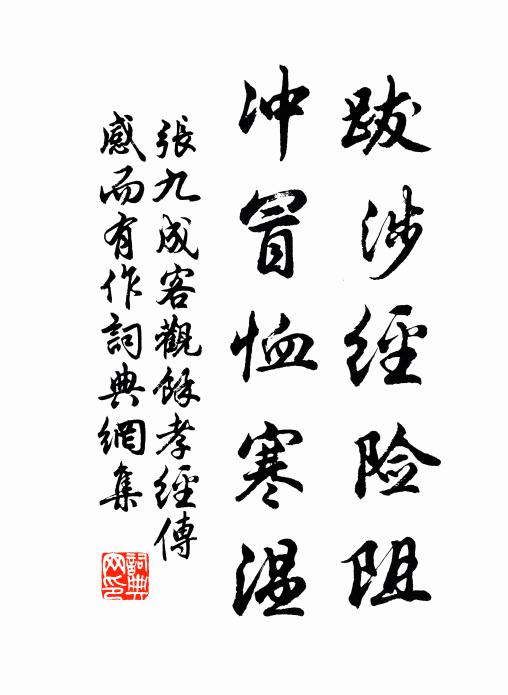 跋涉經险阻
冲冒恤寒温
張九成客觀餘孝經傳
感而有作詞典網集
詞典網印